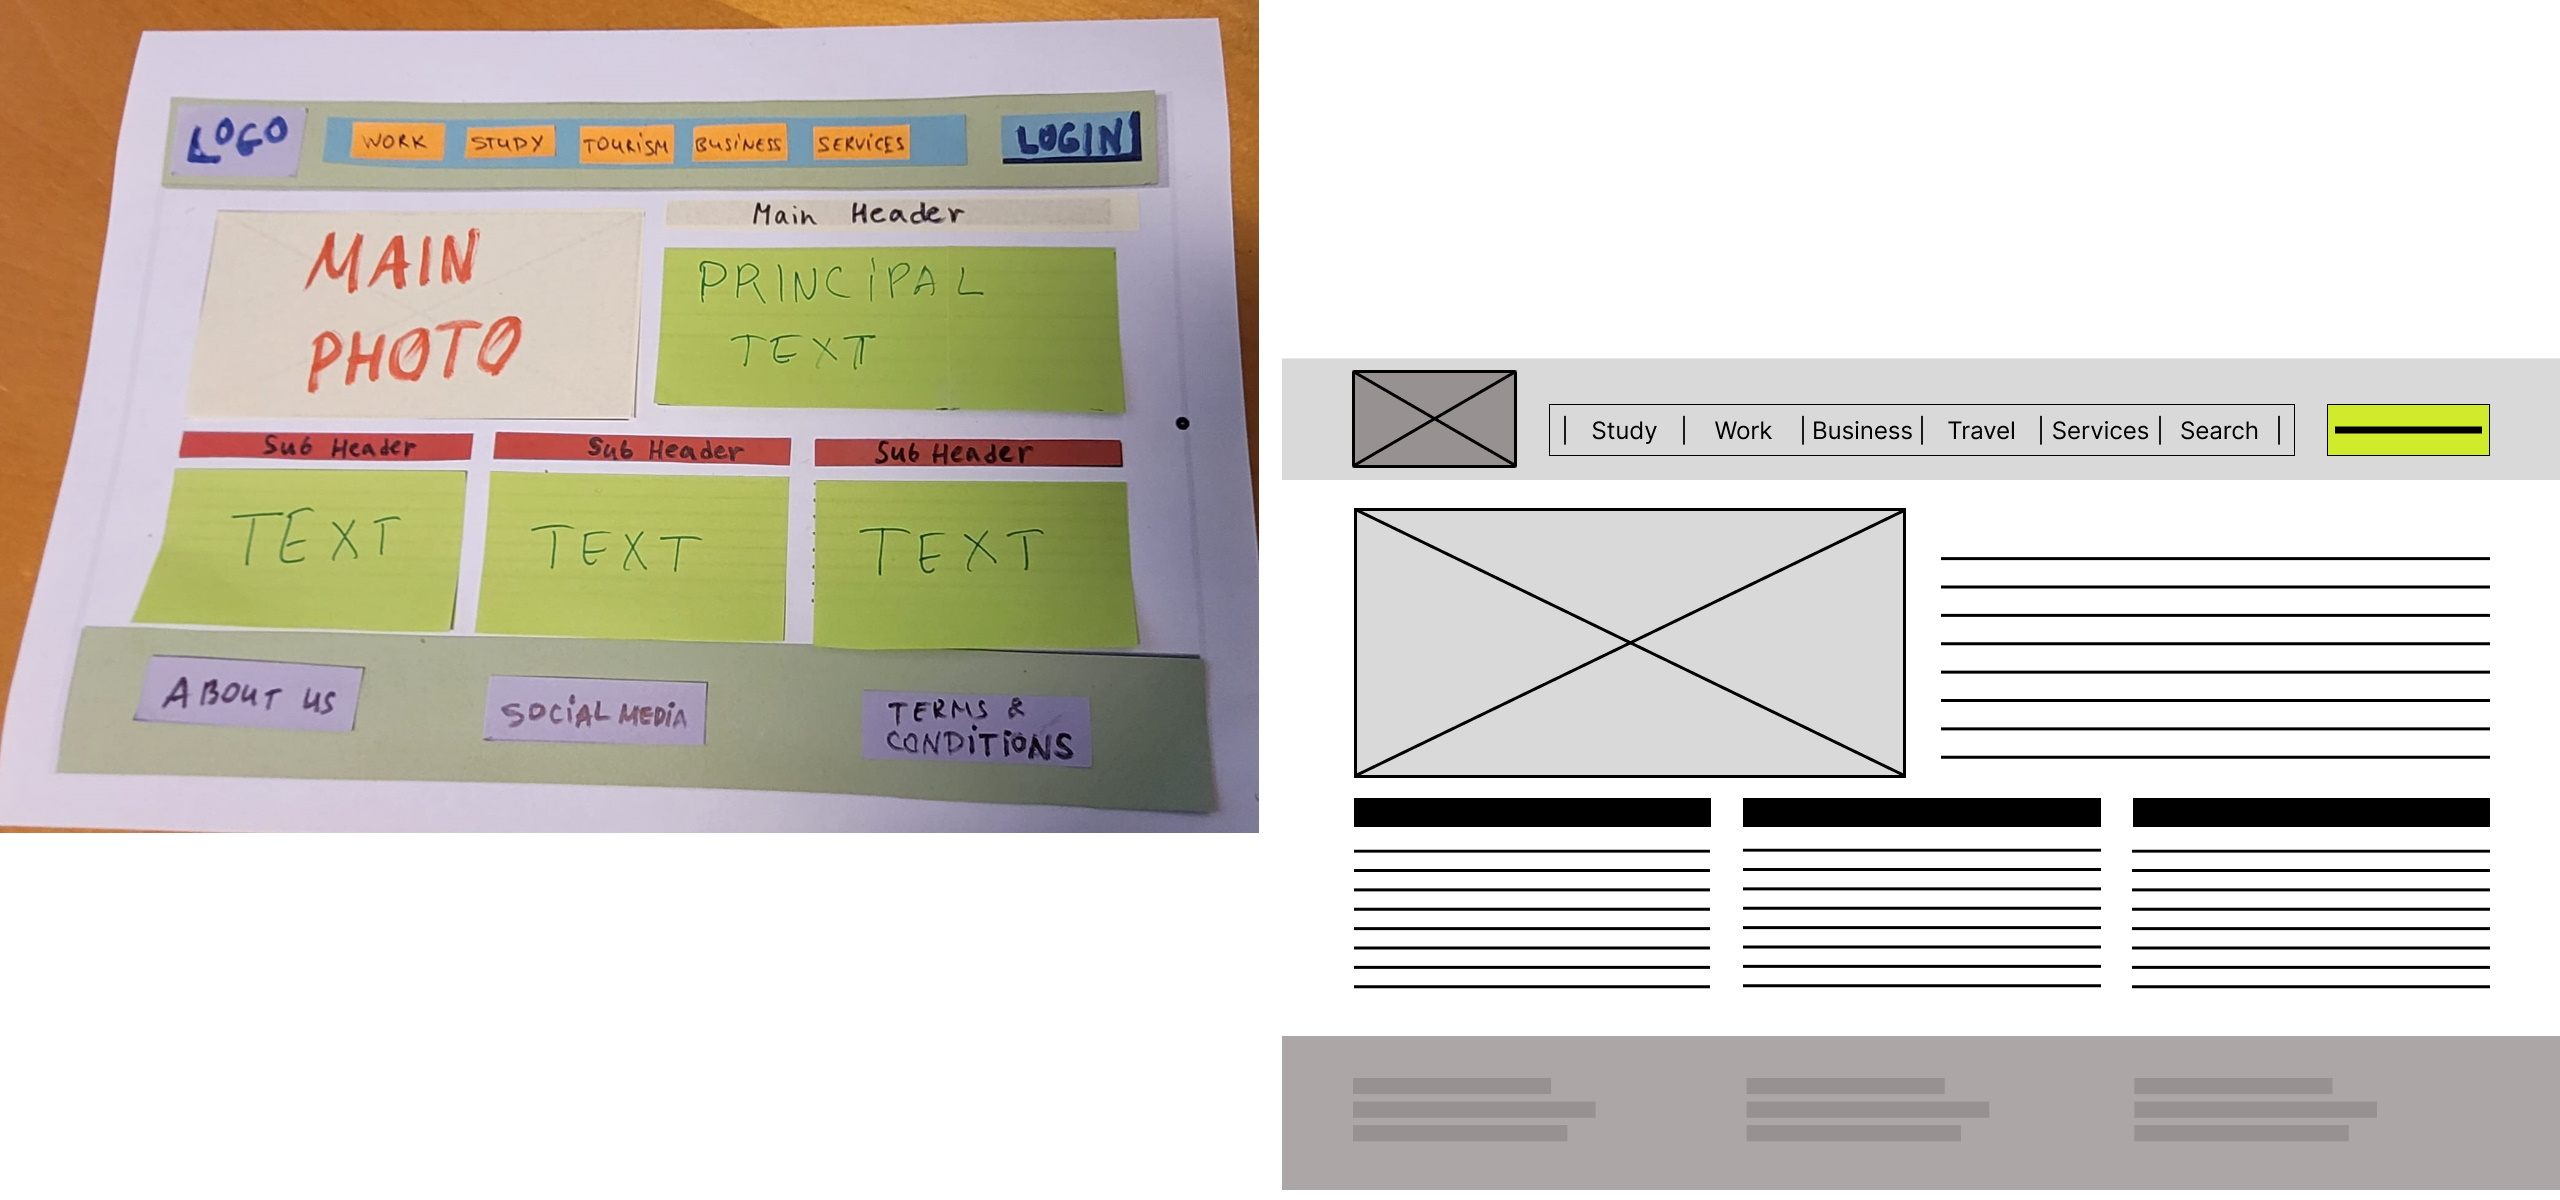 LOGO
WORK STUDY TOURiSM BUSiNESS SERViCES
LOGIN
MAIN
PHOTO
Main Header
PRINCiPAL
TEXT
Sub Header
Sub Header
Sub Header
TEXT
TEXT
TEXT
ABOUT US
SOCiAL MEDiA
TERMS &
CONDiTiONS
Study Work Business Travel Services Search